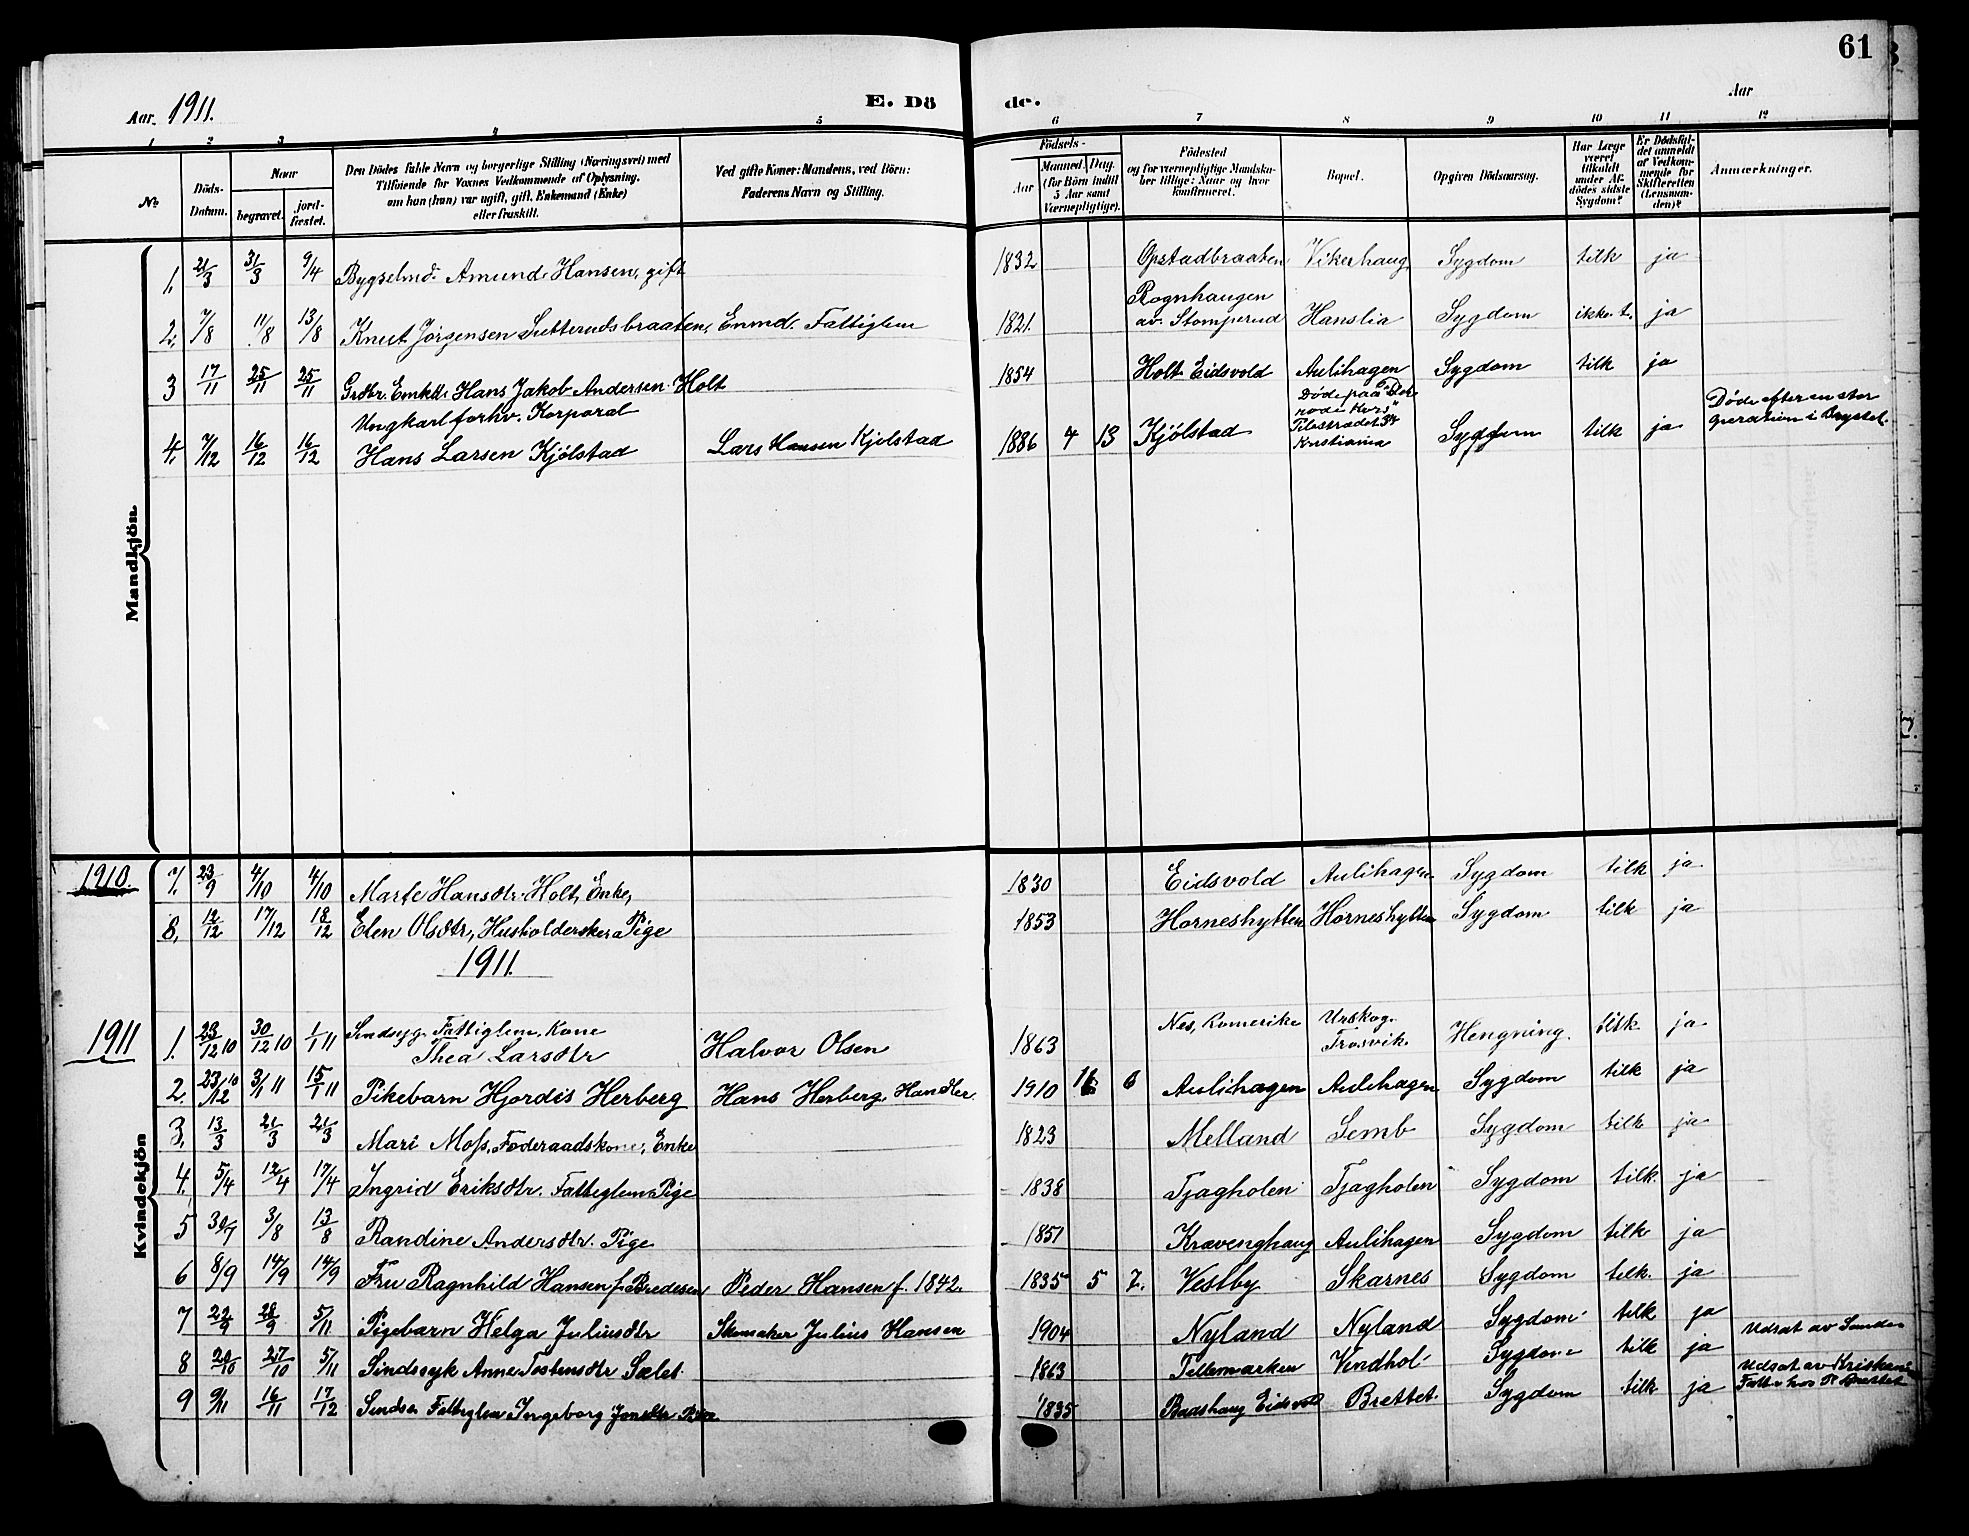 61
Aar. 1911.
E. Dö de.
Aar
1 2 3 4 5 6 7 8 9 10 11 12
No
Döds-Datum.
Naar
begravet.
jord-fæstet.
Den Dödes fulde Navn og borgerlige Stilling (Næringsvei) med
Tilföiende for Voxnes Vedkommende af Oplysning,
om han (hun) var ugift, gift, Enkemand (Enke)
eller fraskilt.
Ved gifte Koner: Mandens, ved Börn:
Faderens Navn og Stilling.
Födsels-
Aar
Maaned. Dag.
(for Börn indtil
5 Aar samt
Værnepligtige).
Födested
og for værnepligtige Mandska-
ber tillige: Naar og hvor
konfirmeret.
Bopæl.
Opgiven Dödsaarsag.
Har Læge
været
tilkaldt
under Af-
dödes sidste
Sygdom?
Er Dödsfal-
det anmeldt
af Vedkom-
mende for
Skifteretten
(Lensman-
den)?
Anmærkninger.
Mandkjön.
1. 21/3 31/3 9/4 Bygselmd. Amund Hansen, gift 1832 Opstadbraaten Vikerhaug Sygdom tilk ja
2. 7/8 11/8 13/8 Knut Jörgensen Sætterudsbraaten, Enmd. Fattiglem 1821. Rognhaugen
av. Stomperud Hanslia Sygdom ikke t. ja
3 17/11 25/11 25/11 Grdbr. Emkd. Hans Jakob Andersen Holt 1854 Holt Eidsvold Aulihagen Sygdom tilk ja
4. 7/12 16/12 16/12 Ungkarl forhv. Korporal
Hans Larsen Kjölstad Lars Hansen Kjölstad 1886 4 13 Kjölstad Döde paa
röde Kors"
Kristiania Sygdom tilk ja Döde efter en stor
operation i Brystet.
Kvindekjön
1910. 7. 23/9 4/10 4/10 Marte Hansdtr. Holt, Enke, 1830 Eidsvold Aulihagen Sygdom tilk ja
8. 12/12 17/12 18/12 Elen Olsdtr, Husholderske Pige 1853 Horneshytten Horneshytten Sygdom tilk ja
1911.
1911 1. 23/12 10 30/12 10 1/1 11 Sindsyg. Fattiglem. Kone
Thea Larsdtr Halvor Olsen 1863 Nes, Romerike Urskog.
Trosvik. Hengning. tilk ja
2. 23/12 10 3/1 11 15/1 11 Pikebarn Hjordis Herberg Hans Herberg, Handler. 1910 11 6 Aulihagen Aulihagen Sygdom tilk ja
3. 13/3 21/3 21/3 Mari Moss, Föderaadskone, Enke 1823 Melland Semb Sygdom tilk ja
4. 5/4 12/4 17/4 Ingrid Eriksdtr. Fattiglem Pige 1838 Tjagholen Tjagholen Sygdom tilk. ja
5 30/7 3/8 13/8 Randine Andersdtr. Pige 1851 Kravenghaug Aulihagen Sygdom tilk ja
6 8/9 14/9 14/9 Fru Ragnhild Hansen f. Bredesen Peder Hansen f. 1842. 1835 5 7. Vestby Skarnes Sygdom tilk. ja
7 22/9 28/9 5/11 Pigebarn Helga Juliusdtr Skomaker Julius Hansen 1904 Nyland Nyland Sygdom tilk ja
8 20/10 27/10 5/11 Sindssyk Anne Tostensdtr Sælet. 1863 Tellemarken Vendhol Sygdom tilk ja Udsat av
9 9/11 16/11 17/12 Sindss. Fattiglem Ingeborg Jonsdtr Pige 1835 Baashaug Eidsvold Brettet Sygdom tilk ja Udsat av